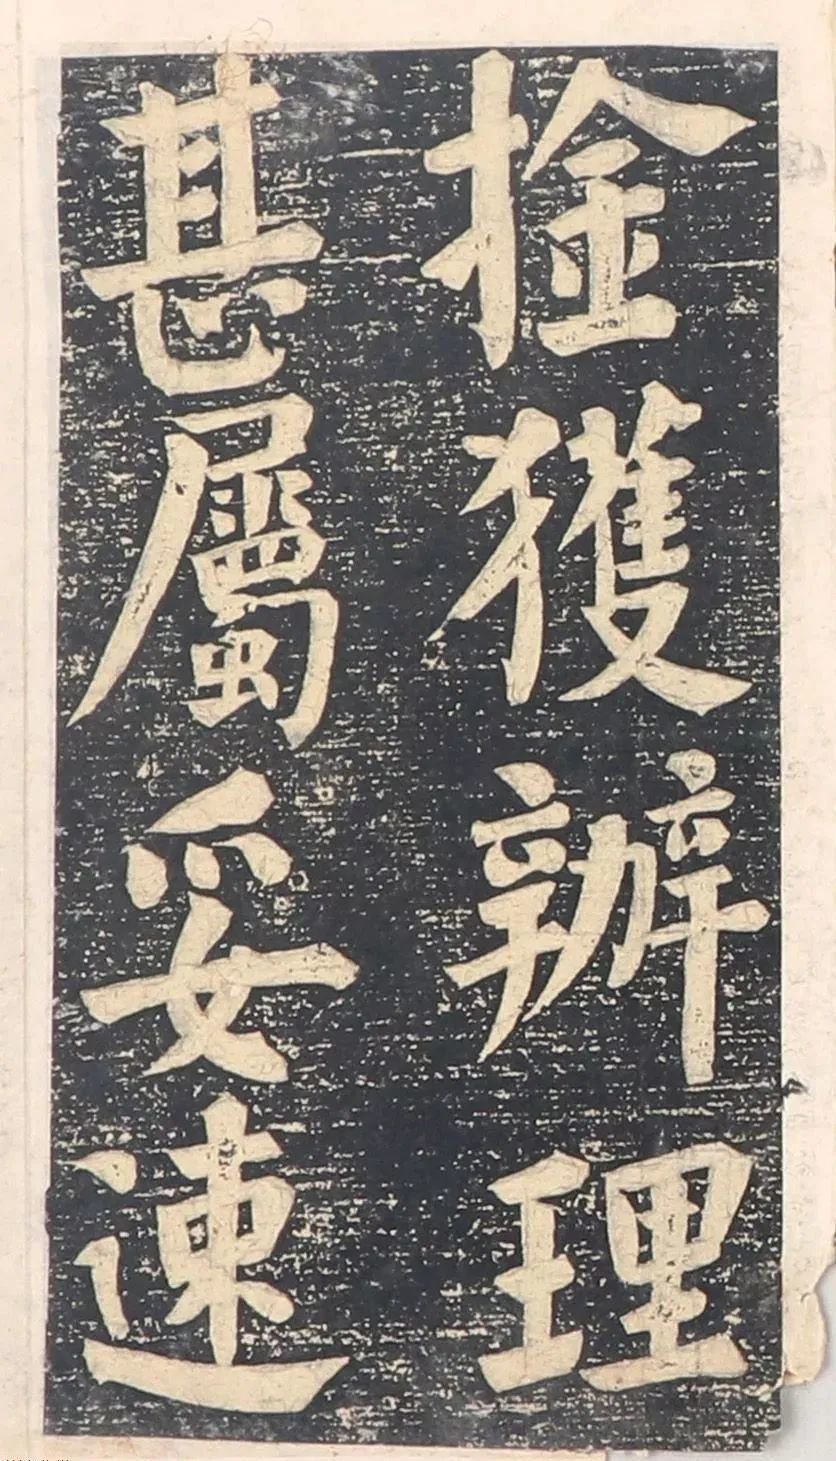 捡獲辦理
甚屬妥速